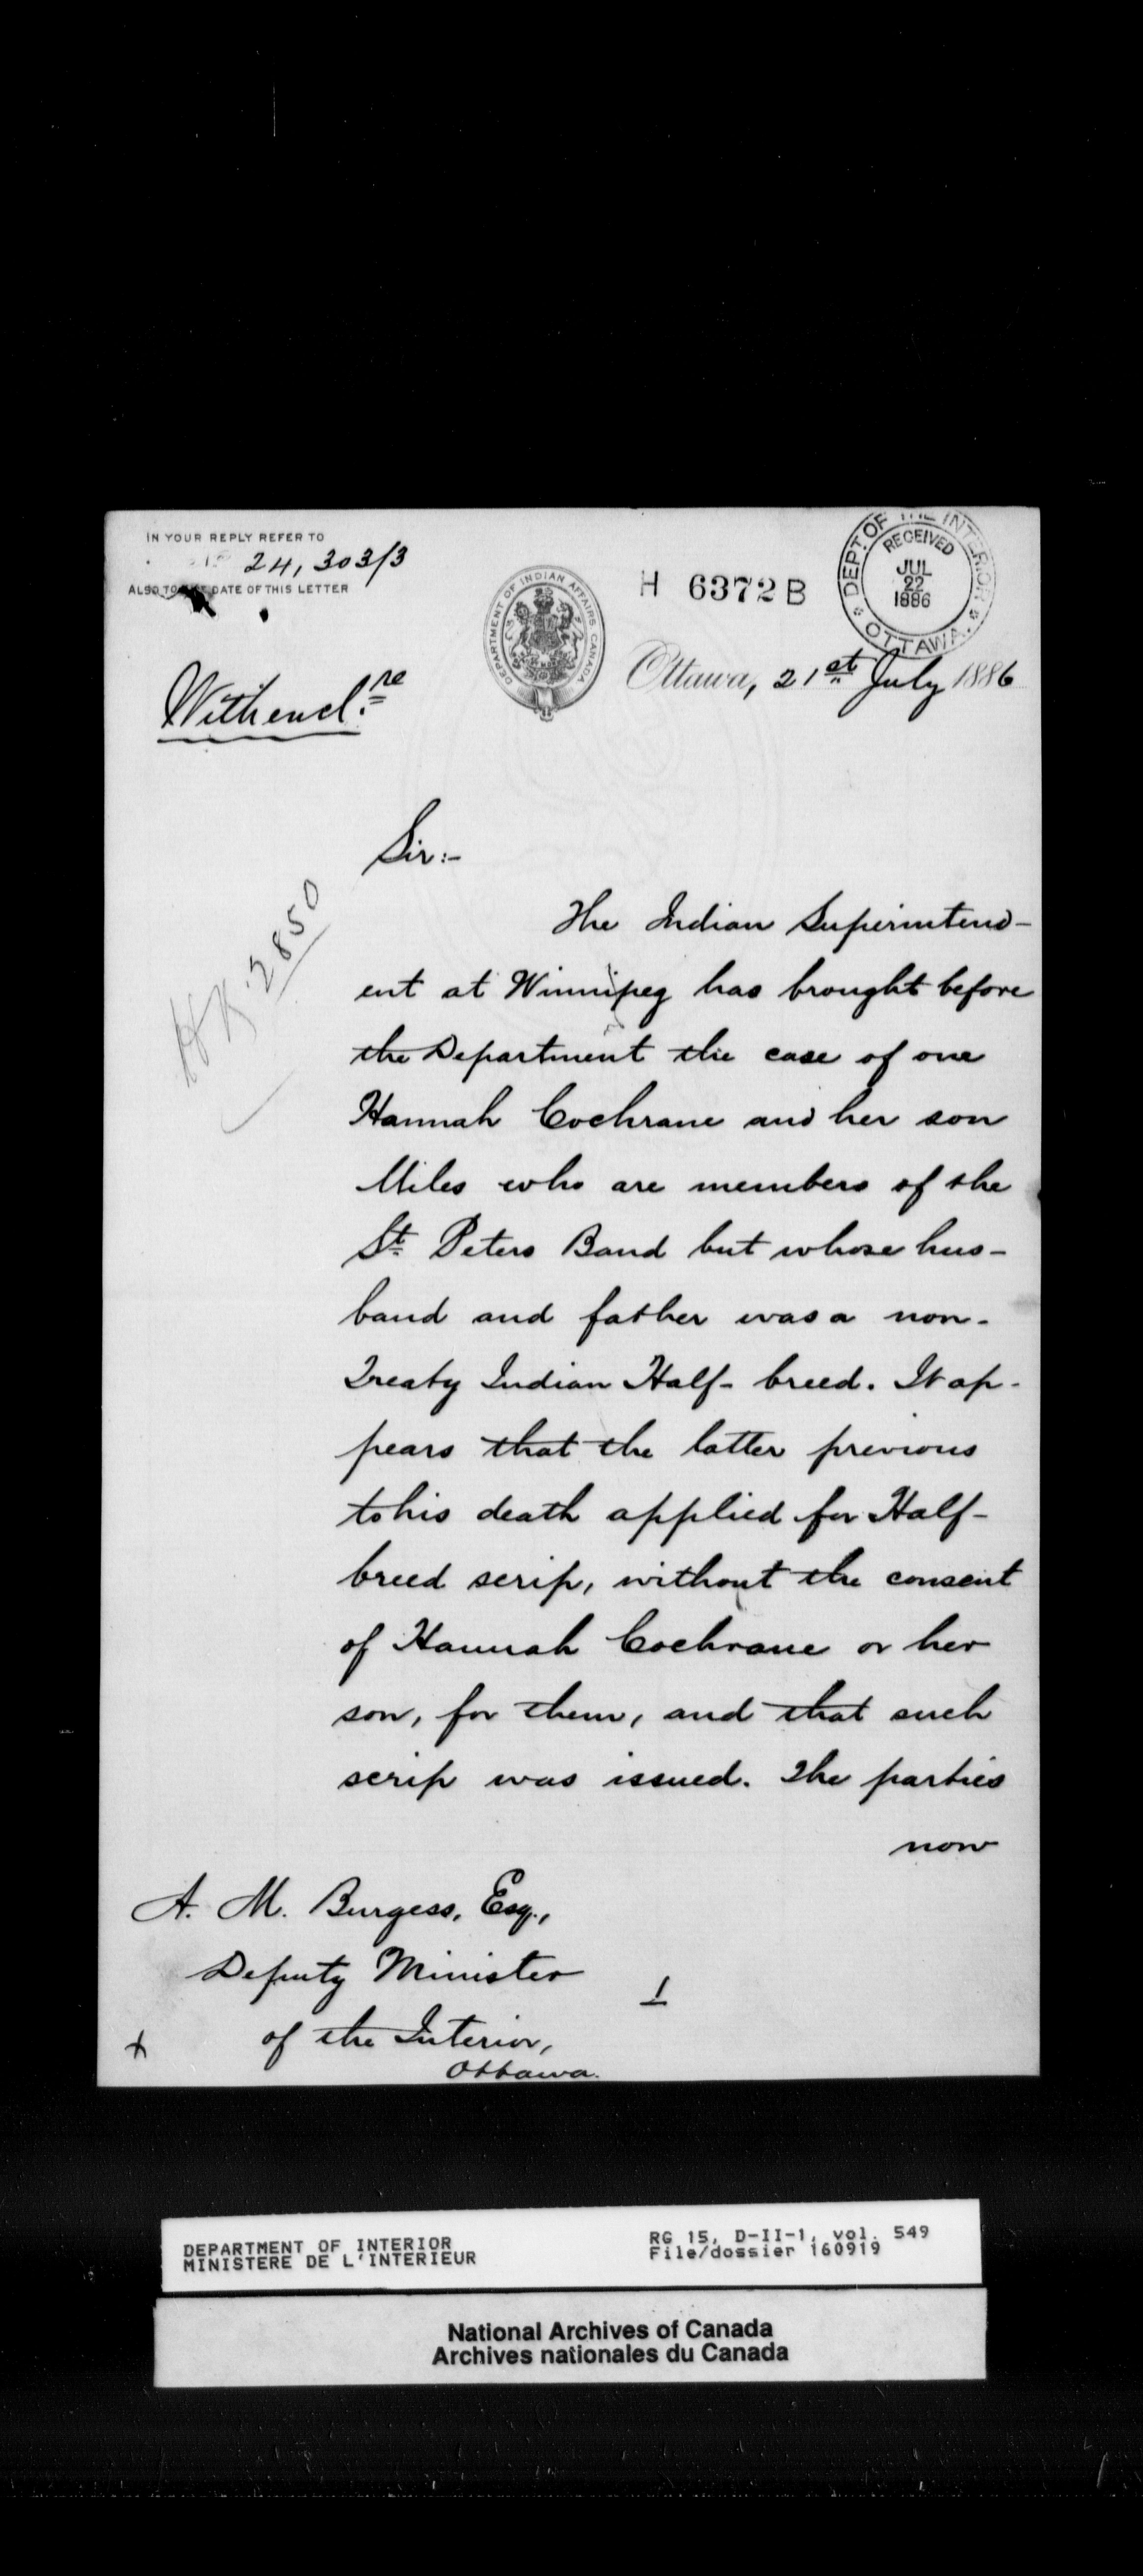 IN YOUR REPLY REFER TO
24,303/3
ALSO TO THE DATE OF THIS LETTER
DEPARTMENT OF INDIAN AFFAIRS CANADA
H 6372 B
DEPT. OF THE INTERIOR
RECEIVED
JUL
22
1886
OTTAWA.
Ottawa, 21st July 1886
With encl.re
Sir:-
2850
The Indian Superintend-
ent at Winnipeg has brought before
the Department the case of one
Hannah Cochrane and her son
Miles who are members of the
St. Peters Band but whose hus-
band and father was a non-
Treaty Indian Half-breed. It ap-
pears that the latter previous
to his death applied for Half-
breed scrip, without the consent
of Hannah Cochrane or her
son, for them, and that such
scrip was issued. The parties
now
A. M. Burgess, Esq.,
Deputy Minister
of the Interior,
Ottawa.
1
DEPARTMENT OF INTERIOR
MINISTERE DE L'INTERIEUR
RG 15, D-II-1, vol. 549
File/dossier 160919
National Archives of Canada
Archives nationales du Canada